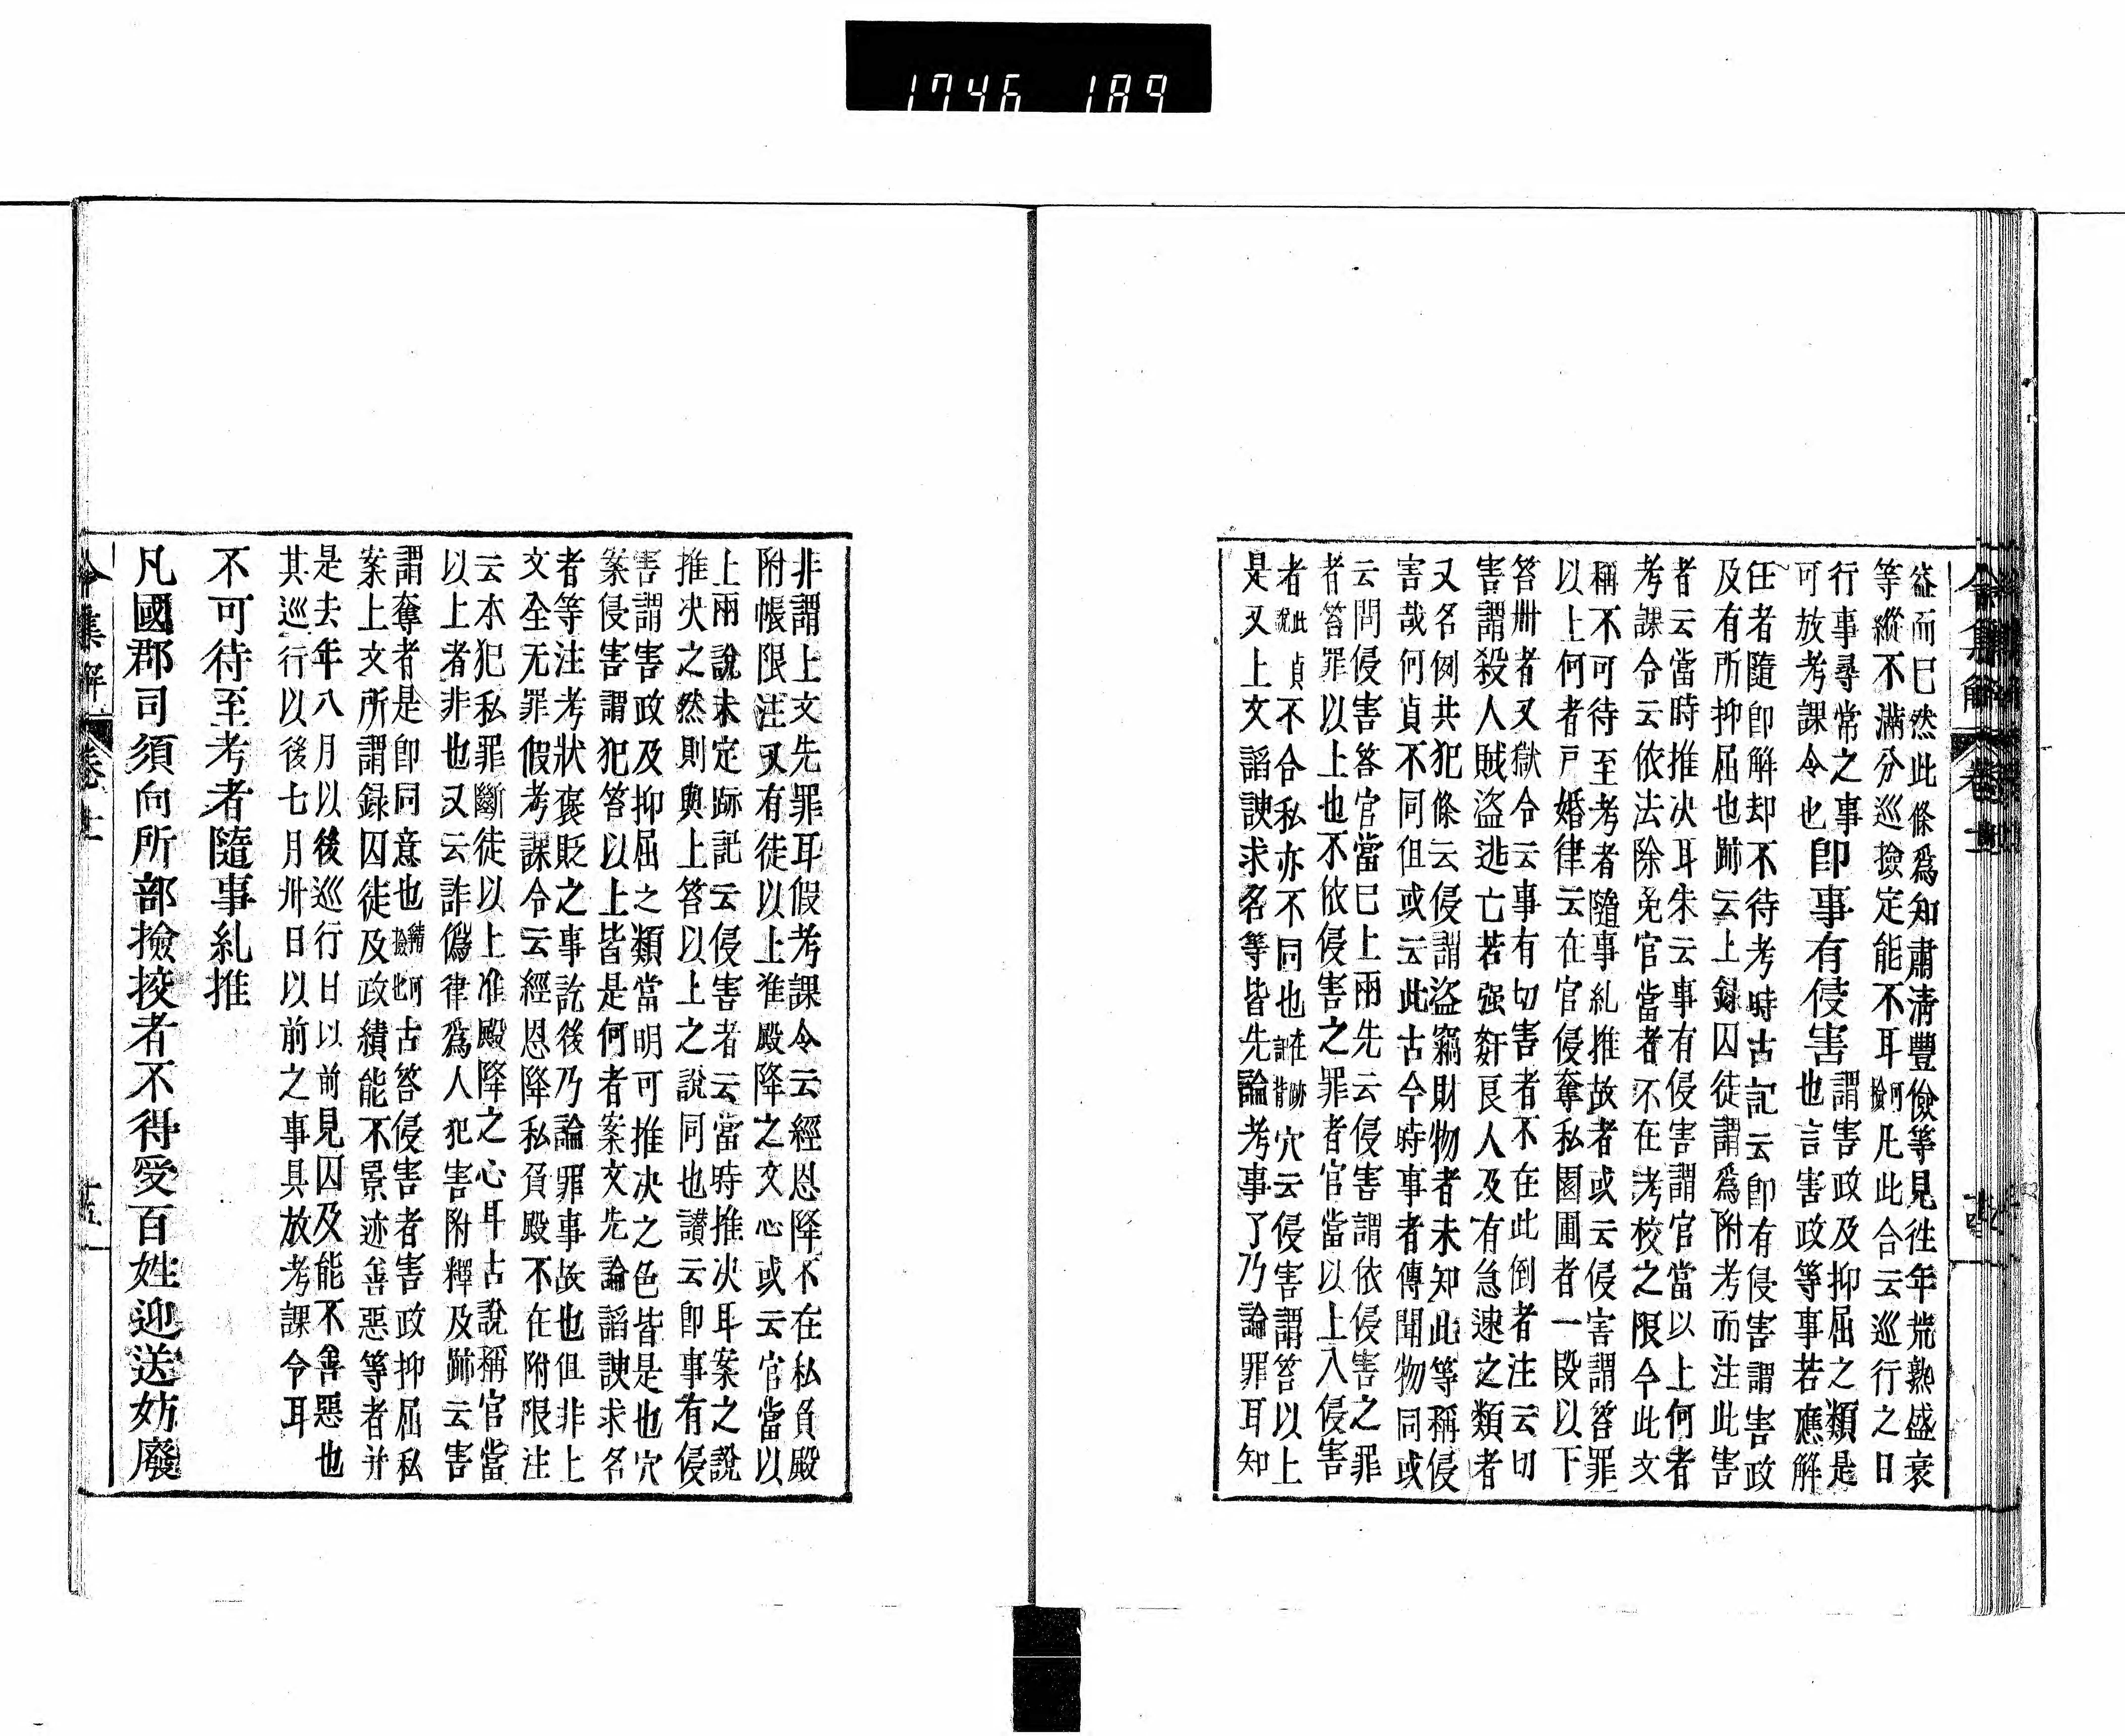 1746 189
益而已然此條爲知肅清豐儉等見徃年荒熟盛衰
等縱不滿分巡撿定能不耳撿何凡此合云巡行之日
行事尋常之事
可放考課令也
即事有侵害
謂害政及抑屈之類是
也言害政等事若應解
任者隨即解却不待考時古記云即有侵害謂害政
及有所抑屈也跡云上録囚徒謂爲附考而注此害
者云當時推决耳朱云事有侵害謂官當以上何者
考課令云依法除免官當者不在考校之限今此文
稱不可待至考者隨事糺推故者或云侵害謂笞罪
以上何者戸婚律云在官侵奪私園圃者一段以下
笞卅者又獄令云事有切害者不在此倒者注云切
害謂殺人賊盗逃亡若强姧良人及有急速之類者
又名例共犯條云侵謂盗竊財物者未知此等稱侵
害哉何貞不同但或云此古今時事者傳聞物同或
云問侵害答官當已上兩先云侵害謂依侵害之罪
者笞罪以上也不依侵害之罪者官當以上入侵害
者此說貞不合私亦不同也在跡記背穴云侵害謂笞以上
是又上文謟諛求名等皆先論考事了乃論罪耳知
令集解 卷十
非謂上文先罪耳假考課令云經恩降不在私負殿
附帳限注又有徒以上准殿降之文心或云官當以
上兩說未定跡記云侵害者云當時推决耳案之說
推决之然則與上答以上之說同也讃云即事有侵
害謂害政及抑屈之類當明可推决之色皆是也穴
案侵害謂犯笞以上皆是何者案文先論謟諛求名
者等注考狀褒貶之事訖後乃論罪事故也但非上
文全无罪假考課令云經恩降私負殿不在附限注
云本犯私罪斷徒以上准殿降之心耳古說稱官當
以上者非也又云詐僞律爲人犯害附釋及跡云害
謂奪者是即同意也古答侵害者害政抑屈私
案上文所謂録囚徒及政績能不景迹善惡等者并
是去年八月以後巡行日以前見囚及能不善惡也
其巡行以後七月卅日以前之事具放考課令耳
不可待至考者隨事糺推
凡國郡司須向所部撿挍者不得受百姓迎送妨廢
令集解 卷十 十五